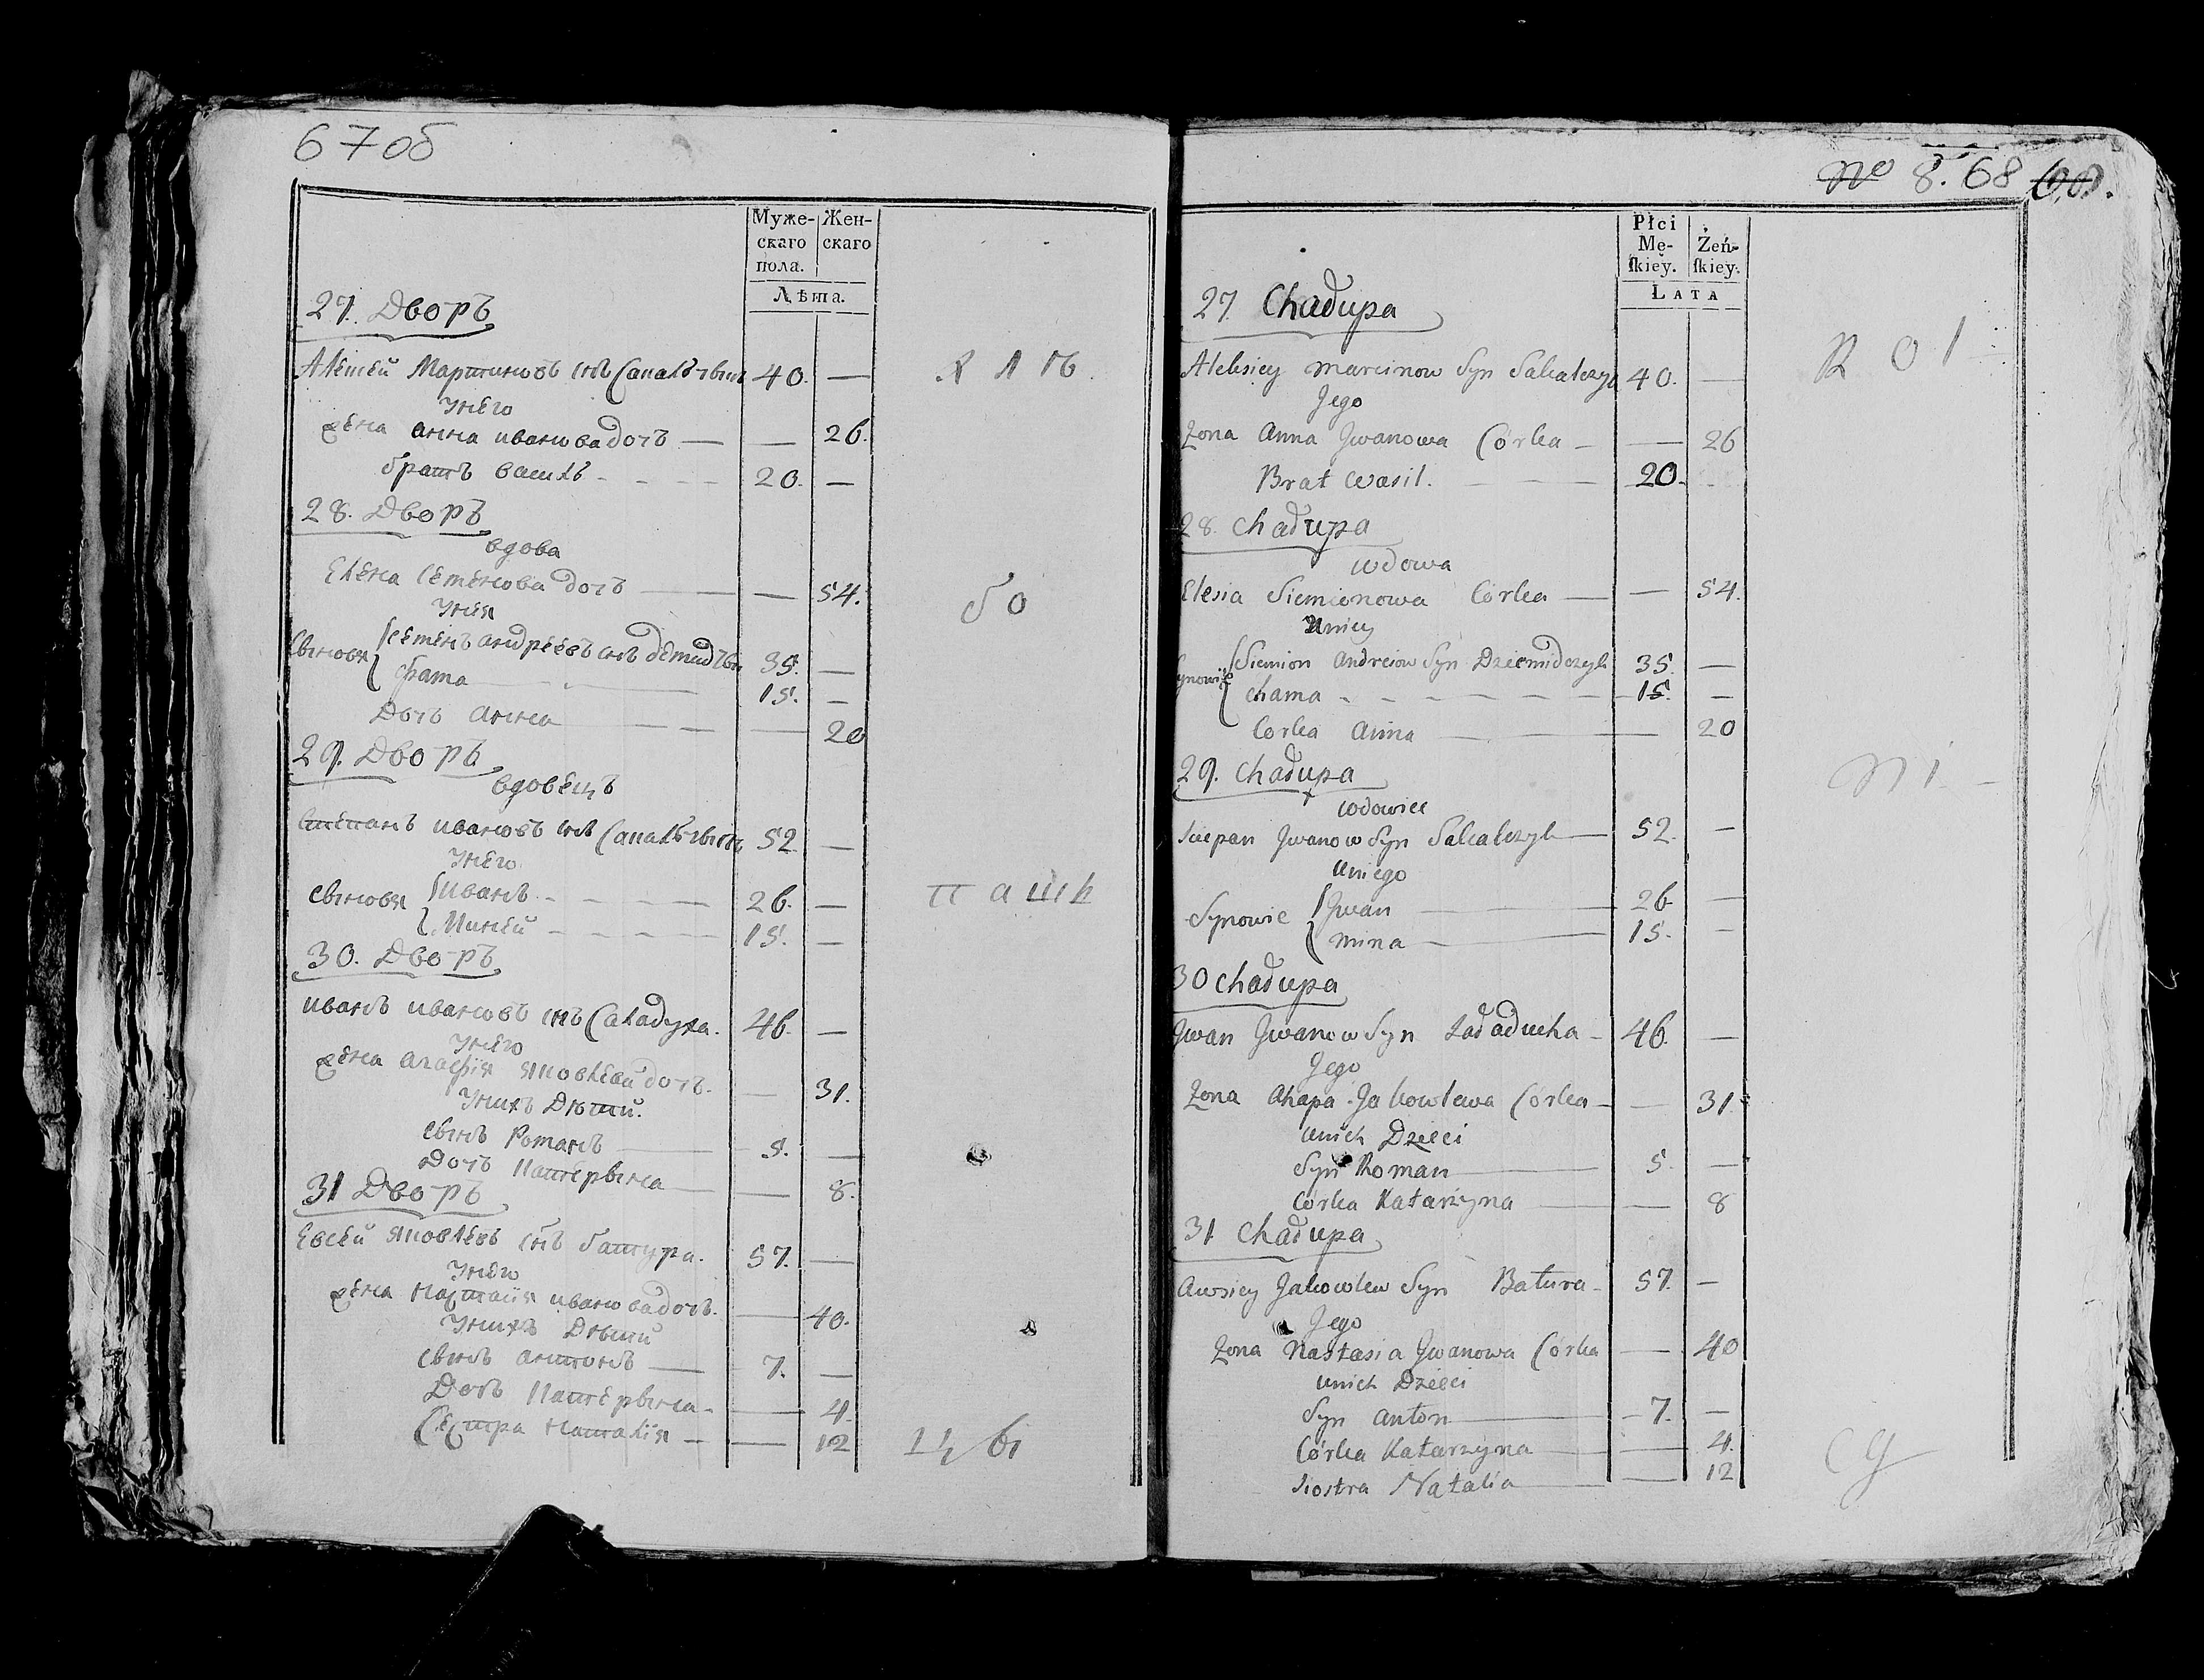 67об
Муже- Жен-
скаго скаго
пола.
Лѣта.
27. Дворъ
Алексѣй Мартиновъ снъ 40. —
Унего
жена анна иванова дочъ — — 26.
братъ василь - - - - 20. —
28. Дворъ
вдова
Елена Семенова дочъ — — 54.
Унея
Сыновя Семенъ андреевъ снъ 35. —
Фама — 15. —
Дочъ анна — — — 20
29. Дворъ
вдовецъ
Степанъ ивановъ снъ 52 —
Унего
Сыновя Иванъ - - - - 26. —
Миней - - - - 15. —
30. Дворъ
иванъ ивановъ снъ Саладуха. 46. —
Унего
жена агафія яковлева дочъ. — 31.
Унихъ Дѣти.
Сынъ Романъ — 5. —
Дочъ Катерына — — 8.
31 Дворъ
Евсей яковлевъ снъ батура. 57. —
Унего
жена настасія иванова дочъ. — 40.
Унихъ Дѣти
Сынъ антонъ — 7. —
Дочъ Катерына - — 4.
Сестра наталія — — 12
бо
No 8. 68
Płci
Mę- Żeń-
ſkiey. ſkiey.
LATA
27 Chadupa
Aleksiey marcinow Syn Sakalczyk 40. —
Jego
Zona Anna Jwanowa Córka — — 26
Brat wasil. — — 20. -
28. Chadupa
wdowa
Elesia Siemionowa Córka — — 54.
Uniey
Synowie Siemion Andreiow Syn Dziemidczyk 35. —
Chama - - - - - - 15. —
Corka Anna — — 20
29. Chadupa
wdowiec
Sciepan Jwanow Syn Sakalczyk — 52. —
Uniego
Synowie Jwan — 26. —
mina — 15. —
30 Chadupa
Jwan Jwanow Syn Sadaducha - 46. —
Jego
Zona Ahapa Jakowlewa Córka - — 31.
Unich Dzieci
Syn Roman — 5. —
Córka Katarzyna — — 8
31 Chadupa
Awsiey Jakowlew Syn Batura - 57. —
Jego
Zona Nastasia Jwanowa Córka — 40
Unich Dzieci
Syn Anton — 7. —
Córka Katarzyna — — 4.
Siostra Natalia — — 12